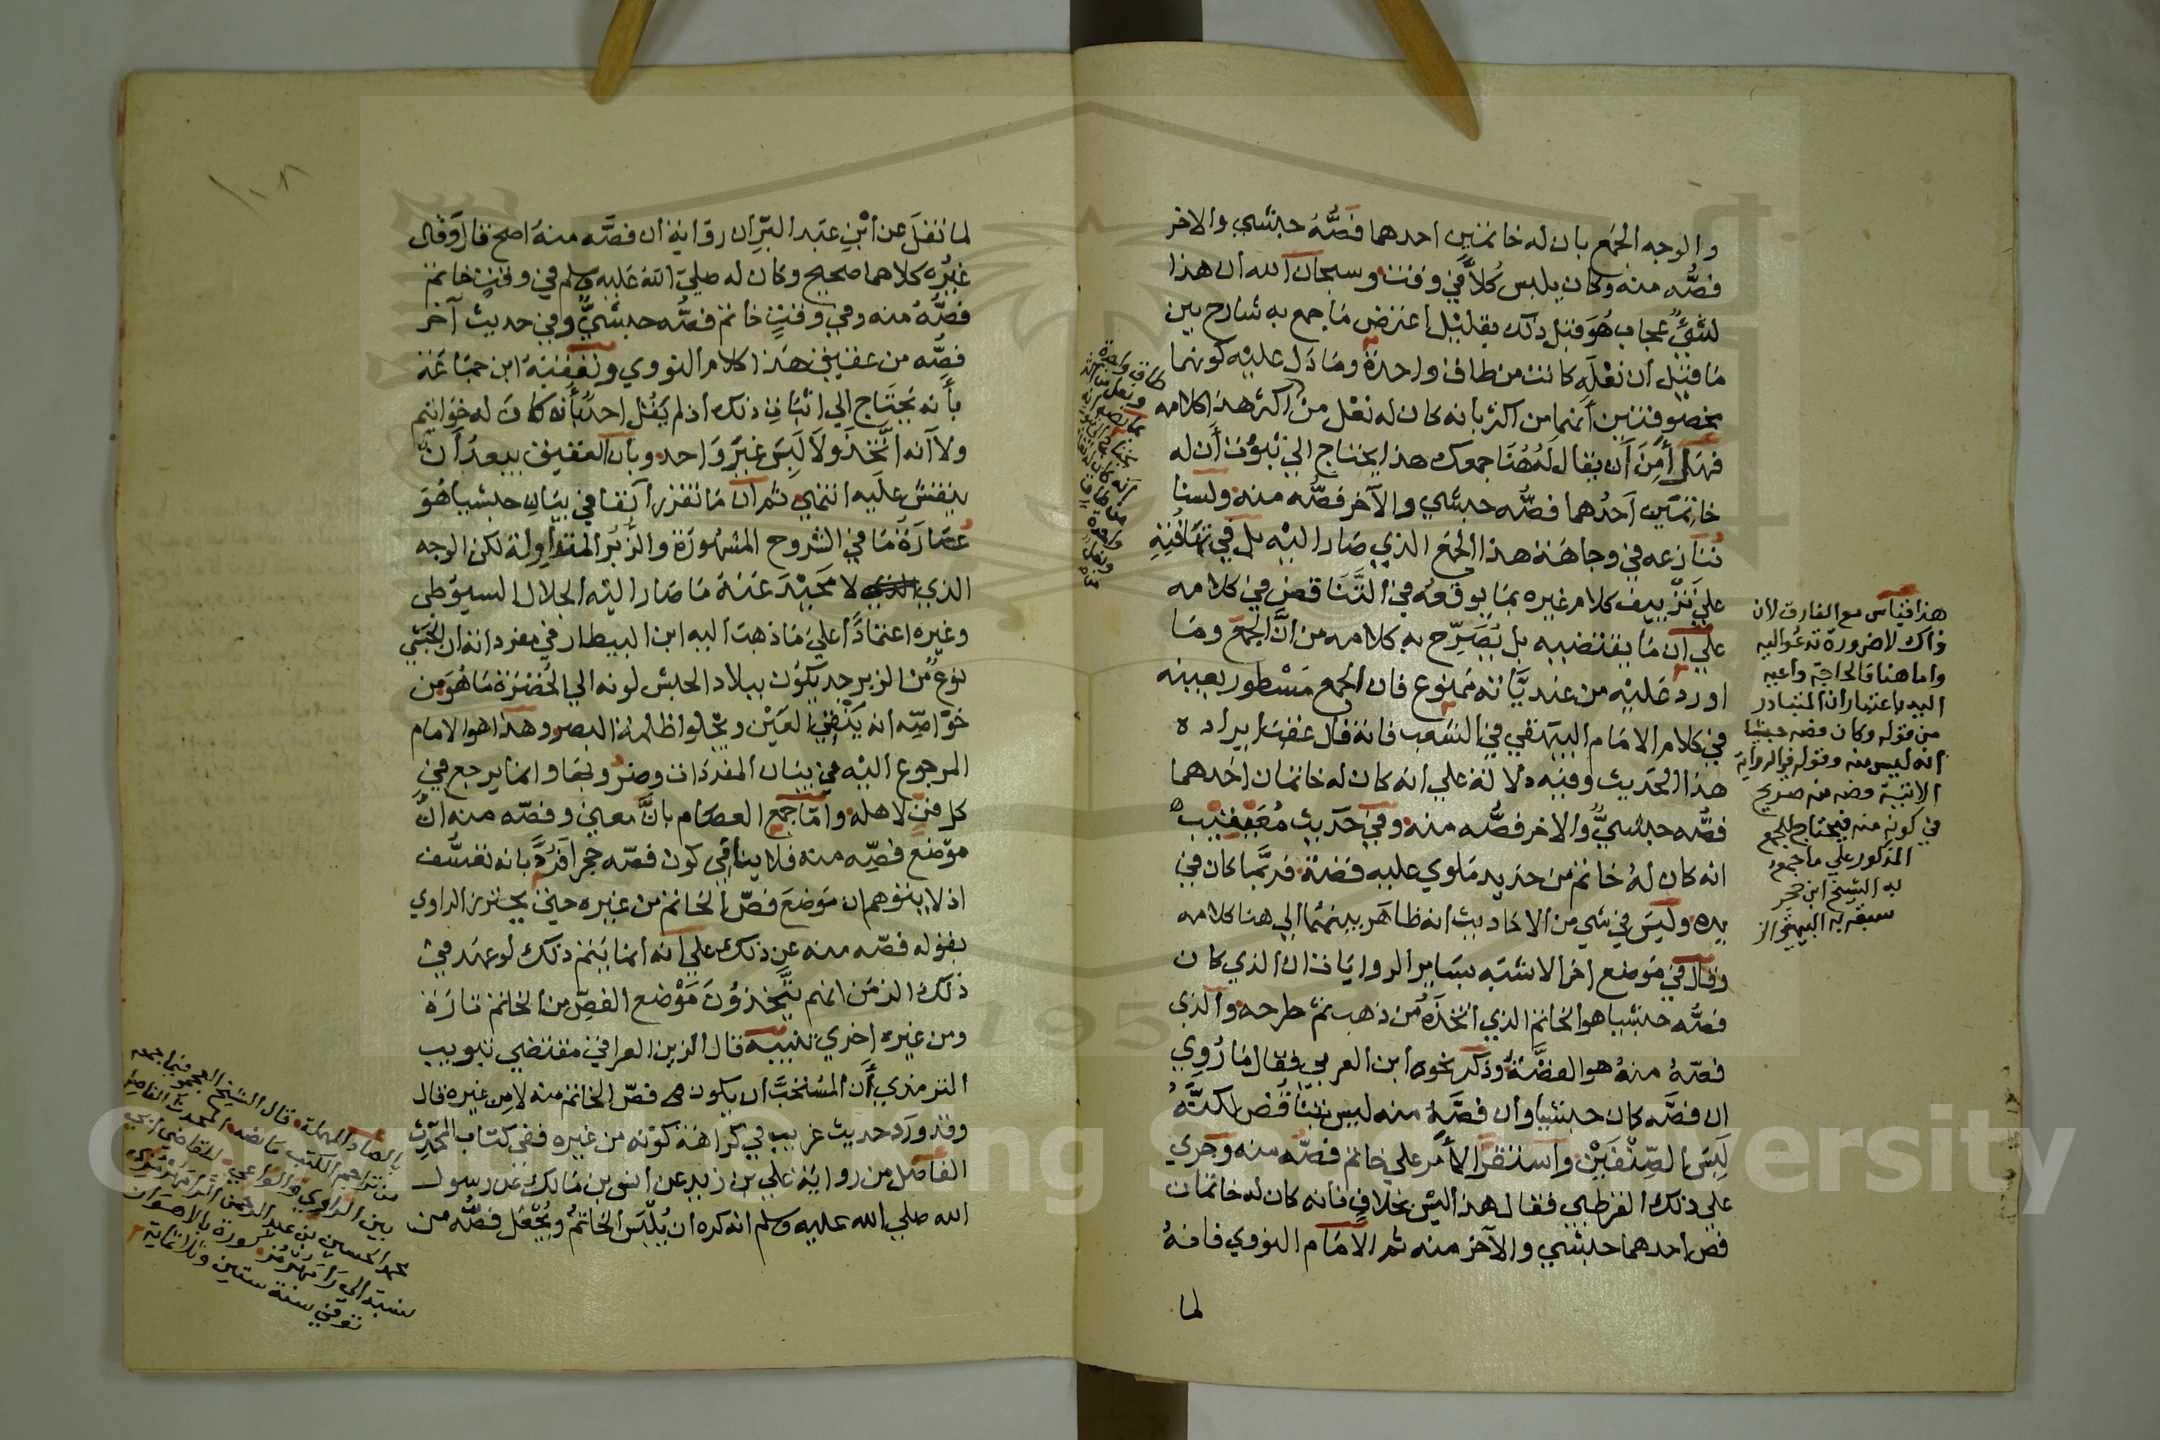 والوجه الجمع بان له خاتمين احدهما فصه حبشي والاخر
فصه منه وكان يلبس كلا في وقت وسبحان الله ان هذا
لشئ عجاب هو قبل ذلك بقليل اعترض ما جمع به شارح بين
ما قيل ان نعله كانت من طاق واحدة وما دل عليه كونهما
مخصوفتين انهما من اكثر بانه كان له نعل من اكثر هذا كلامه
فهلا أمن أن يقال له هنا جمعك هذا يحتاج الي ثبوت أن له
خاتمين أحدهما فصه حبشي والآخر فصه منه ولسنا
ننازعه في وجاهة هذا الجمع الذي صار اليه بل في
علي تزييف كلام غيره بما يوقعه في التناقض في كلامه
علي ان ما يقتضيه بل يصرح به كلامه من ان الجمع وما
اورد عليه من عندياته ممنوع فان الجمع مسطور بعينه
في كلام الامام البيهقي في الشعب فانه قال عقب ايراده
هذا الحديث وفيه دلالة علي انه كان له خاتمان احدهما
فصه حبشي والاخر فصه منه وفي حديث معيقيب
انه كان له خاتم من حديد ملوي عليه فضة فربما كان في
يده وليس في شي من الاحاديث انه ظاهر بينهما الي هنا كلامه
وقال في موضع اخر الاشبه بساير الروايات ان الذي كان
فصه حبشيا هو الخاتم الذي اتخذه من ذهب ثم طرحه والذي
فصه منه هو الفضة وذكر نحوه ابن العربي فقال ما روي
ان فصه كان حبشيا وان فصه منه ليس بتناقض لكنه
لبس الصنفين واستقر الأمر علي خاتم فصه منه وجري
علي ذلك القرطبي فقال هذا ليس بخلاف فانه كان له خاتمان
فص احدهما حبشي والآخر منه ثم الامام النووي فانه
لما
هذا قياس مع الفارق لان
ذاك لا ضرورة تدعو اليه
واما هنا فالحاجة داعية
اليه باعتبار ان المتبادر
من قوله وكان فصه حبشيا
انه ليس منه وقوله في الرواية
الاتية فصه منه صريح
في كونه منه فيحتاج للجمع
المذكور علي ما جمع
به الشيخ ابن حجر
سبقه به البيهقي
لما نقل عن أبن عبد البر ان رواية ان فصه منه اصح قال وقال
غيره كلاهما صحيح وكان له صلي الله عليه وسلم في وقت خاتم
فصه منه وفي وقت خاتم فصه حبشي وفي حديث آخر
فصه من عقيق هذا كلام النووي وتعقبه ابن جماعة
بأنه يحتاج الي اثبات ذلك اذ لم يقل احد بأنه كان له خواتيم
ولا أنه اتخذ ولا لبس غير واحد وبأن العقيق يبعد أن
ينقش عليه انتهي ثم ان ما تقرر آنفا في بيان حبشيا هو
عصارة ما في الشروح المشهورة والزبر المتداولة لكن الوجه
الذي لا محيد عنه ما صار اليه الجلال السيوطي
وغيره اعتمادا علي ما ذهب اليه ابن البيطار في مفرداته ان الحبشي
نوع من الزبرجد يكون ببلاد الحبش لونه الي الخضرة ما هو من
خواصه انه ينقي العين ويجلوا ظلمة البصر وهذا هو الامام
المرجوع اليه في بيان المفردات وضروبها وانما يرجع في
كل فن لاهله وأما جمع العصام بان معني وفصه منه ان
موضع فصه منه فلا ينافي كون فصه حجرا فرد بانه تعسف
اذ لا يتوهم ان موضع فص الخاتم من غيره حتي يحترز الراوي
بقوله فصه منه عن ذلك علي انه انما يتم ذلك لو عهد في
ذلك الزمن انهم يتخذون موضع الفص من الخاتم تارة
ومن غيره اخري تنبيه قال الزين العراقي مقتضي تبويب
الترمذي أن المستحب أن يكون فص الخاتم منه لا من غيره قال
وقد ورد حديث غريب في كراهة كونه من غيره ففي كتاب المحدث
الفاصل من رواية علي بن زيد عن انس بن مالك عن رسول
الله صلي الله عليه وسلم انه كره ان يلبس الخاتم ويجعل فصه من
بالصاد المهملة قال الشيخ
من تراجم الكتب ما نصه المحدث الفاصل
بين الراوي والواعي للقاضي ابي
محمد الحسين بن عبد الرحمن الرامهرمزي
نسبة الي رامهرمز كورة بالاهواز
توفي سنة ستين وثلاثماية
١٠٨
Copyright © King Saud University
1957